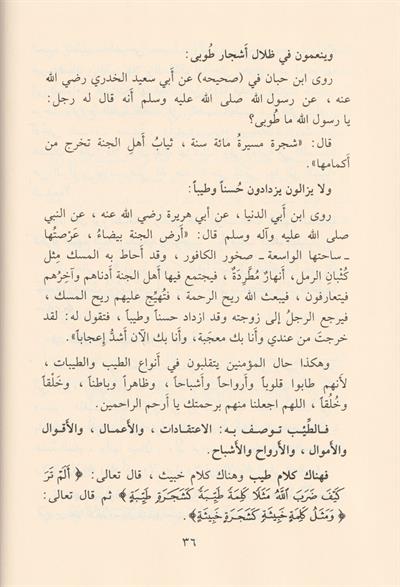 وينعمون في ظلال أَشجار طُوبى:
روى ابن حبان في (صحيحه) عن أَبي سعيد الخدري رضي الله
عنه ، عن رسول الله صلى الله عليه وسلم أَنه قال له رجل:
يا رسول الله ما طُوبى؟
قال: «شجرة مسيرةُ مائة سنة ، ثيابُ أَهلِ الجنة تخرج من
أكمامها».
ولا يزالون يزدادون حُسناً وطيباً:
روى ابن أَبي الدنيا ، عن أبي هريرة رضي الله عنه ، عن النبي
صلى الله عليه وآله وسلم قال: «أَرض الجنة بيضاءُ ، عَرْصتُها
ـ ساحتها الواسعة ـ صخور الكافور ، وقد أَحاط به المسك مِثل
كُثْبان الرمل، أَنهارٌ مُطَّرِدَةٌ ، فيجتمع فيها أَهل الجنة أدناهم وآخِرُهم
فيتعارفون ، فيبعث الله ريح الرحمة ، فتُهيِّج عليهم ريح المسك ،
فيرجع الرجلُ إلى زوجته وقد ازداد حسناً وطيباً ، فتقول له: لقد
خرجتَ من عندي وأَنا بك معجَبة، وأَنا بك الآن أَشدُّ إعجاباً».
وهكذا حال المؤمنين يتقلبون في أَنواع الطيب والطيبات ،
لأَنهم طابوا قلوباً وأَرواحاً وأَشباحاً ، وظاهراً وباطناً ، وخَلْقاً
وخُلُقاً ، اللهم اجعلنا منهم برحمتك يا أَرحم الراحمين.
فالطَّيِّب توصف به: الاعتقادات ، والأَعمال ، والأَقوال
والأَموال ، والأَرواح والأَشباح.
فهناك كلام طيب وهناك كلام خبيث ، قال تعالى: ﴿ أَلَمْ تَرَ
كَيْفَ ضَرَبَ اللَّهُ مَثَلًا كَلِمَةً طَيِّبَةً كَشَجَرَةٍ طَيِّبَةٍ ﴾ ثم قال تعالى:
﴿ وَمَثَلُ كَلِمَةٍ خَبِيثَةٍ كَشَجَرَةٍ خَبِيثَةٍ ﴾.
٣٦